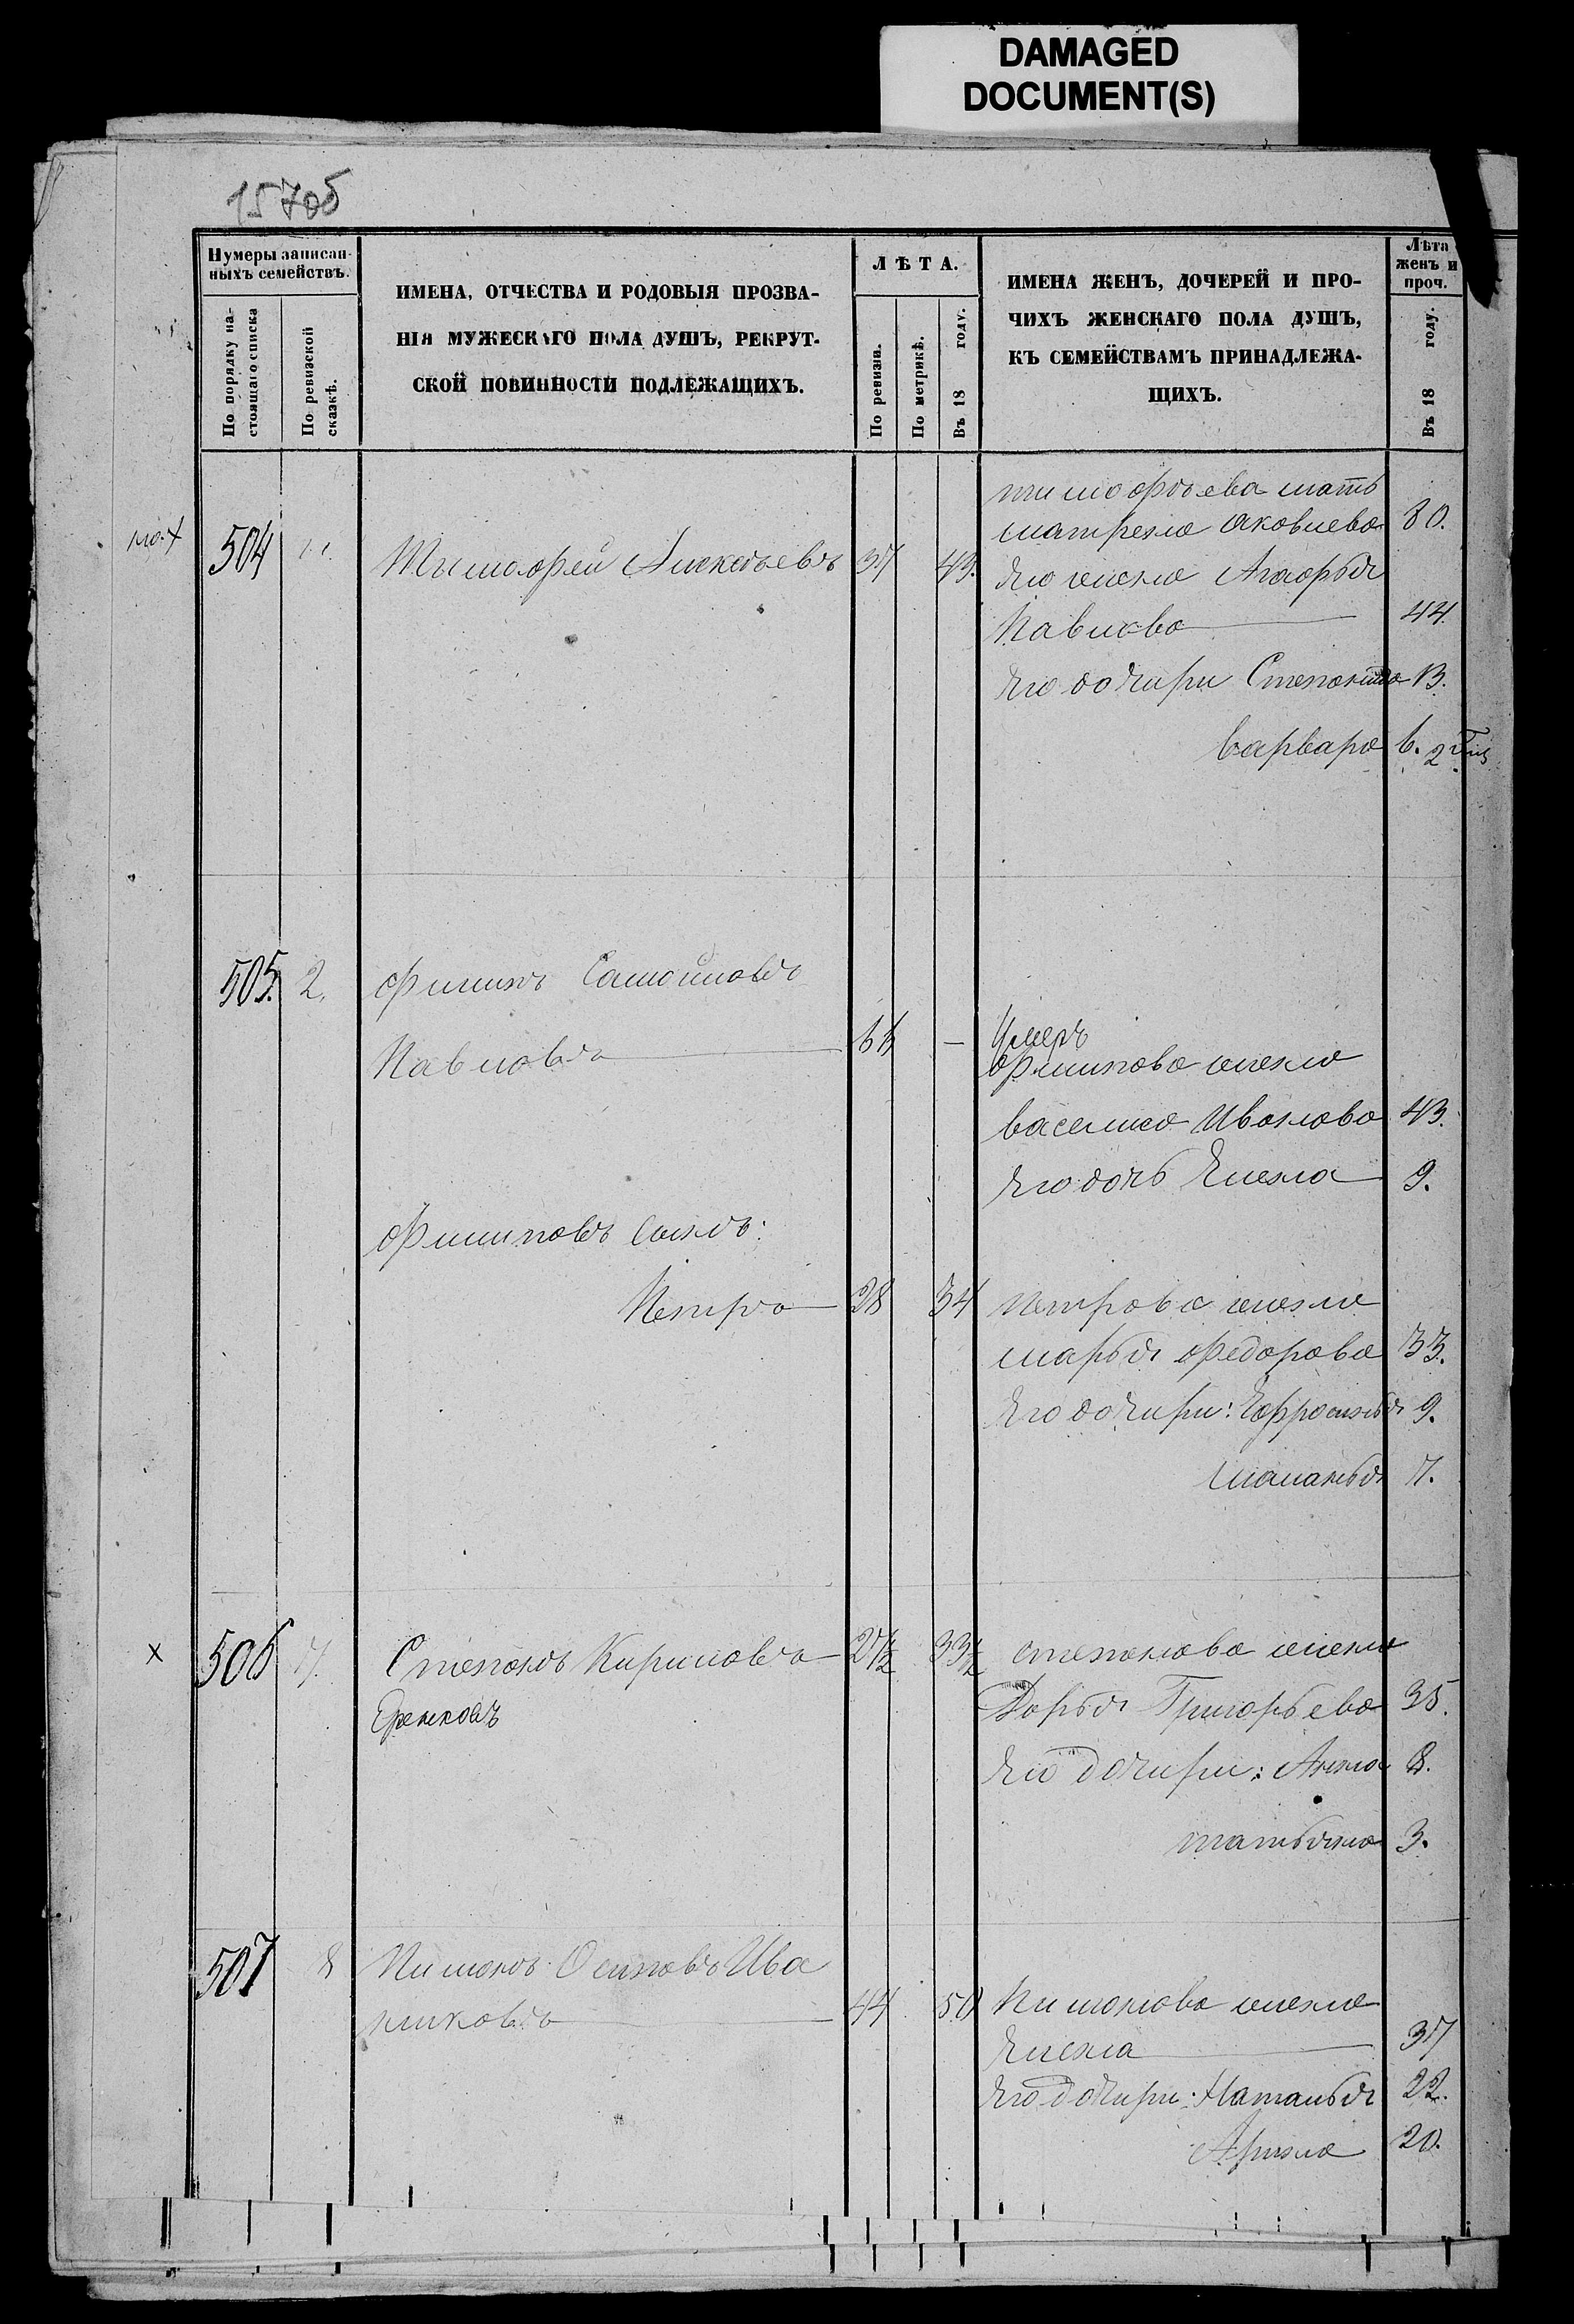 DAMAGED
DOCUMENT(S)
157об
Нумеры записан-
ныхъ семействъ.
По порядку на-
стоящаго списка
По ревизской
сказкѣ.
ИМЕНА, ОТЧЕСТВА И РОДОВЫЯ ПРОЗВА-
НІЯ МУЖЕСКАГО ПОЛА ДУШЪ, РЕКРУТ-
СКОЙ ПОВИННОСТИ ПОДЛЕЖАЩИХЪ.
ЛѢТА.
По ревизіи.
По метрикѣ.
Въ 18 году.
ИМЕНА ЖЕНЪ, ДОЧЕРЕЙ И ПРО-
ЧИХЪ ЖЕНСКАГО ПОЛА ДУШЪ,
КЪ СЕМЕЙСТВАМЪ ПРИНАДЛЕЖА-
ЩИХЪ.
Лѣта
женъ и
проч.
Въ 18 году.
тимофѣева мать
матрена яковлева 80.
504 Тимофей 37 43. Его жена Агафья
Павлова 44.
Его дочири Степанида 13.
варвара 6.
505. 2. Филипъ Самойловъ
Павловъ — Умеръ
Филипова жена
василиса Иванова 43.
Его дочь Елена 9.
Филиповъ сынъ:
Петръ 28 34 петрова жена
марья Федорова 33.
Его дочири: Ефросинья 9.
маланья 7.
х 506 7. Степанъ Кириловъ 27½ 33½ степанова жена
Еремковъ
Дарья Григорьева 35.
Его дочири: Анна 8.
татьяна 3.
507 8 Пиманъ Осиповъ Ива
никовъ 44 50 Пиманова жена
Елена 37
Его дочири: Наталья 22.
Арина 20.